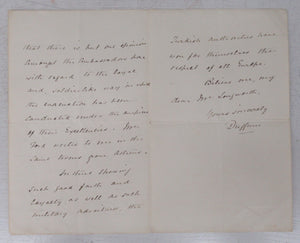 that there is but one opinion
amongst the Ambassadors here
with regard to the loyal
and soldierlike way in which
the evacuation has been
conducted under the auspices
of their Excellencies.
wrote to me in the
same terms from Athens.
In thus showing
such good faith and
loyalty as well as such
military adroitness, the
Turkish Authorities have
won for themselves the
respect of all Europe.
Believe me, my
dear Longworth,
Yours sincerely
Dufferin